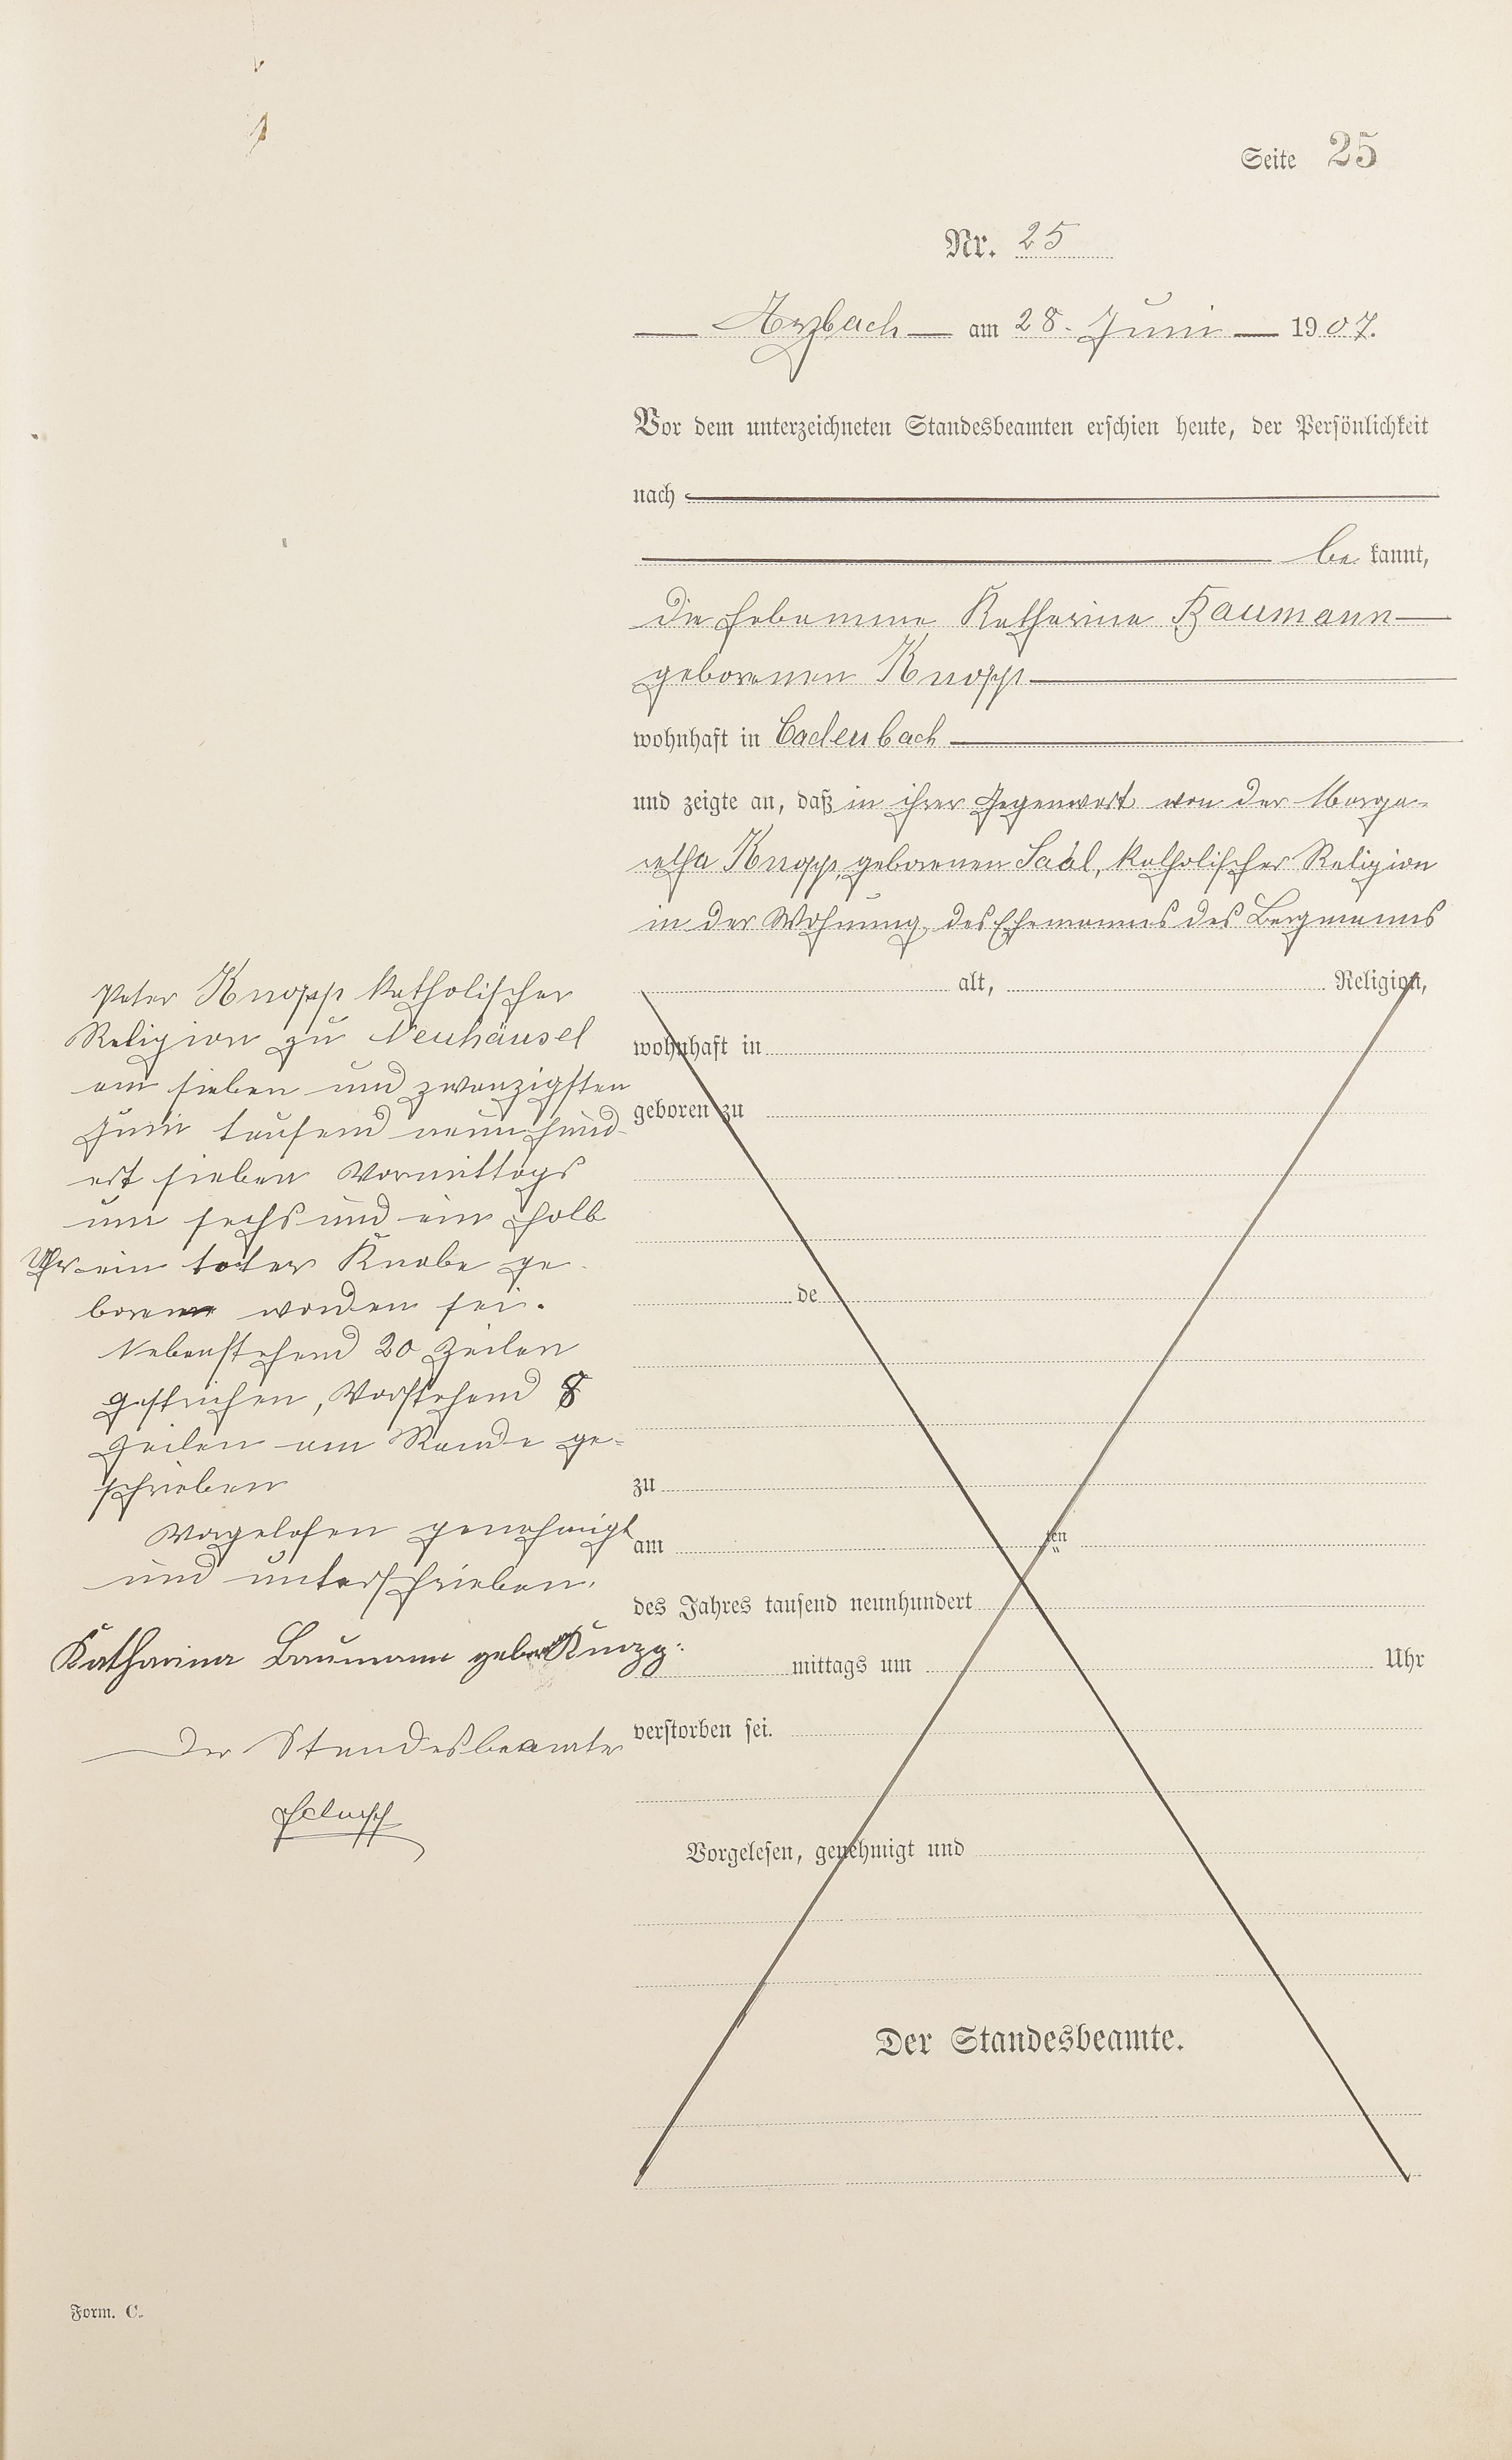 Seite 25
Nr. 25
Arzbach am 28. Juni 1907.
Vor dem unterzeichneten Standesbeamten erschien heute, der Persönlichkeit
nach
be kannt,
die Hebamme Katharina Baumann
geborenen Knopp
wohnhaft in Cadenbach
und zeigte an, daß in ihrer Gegenwart von der Marga-
retha Knopp, geborenen Saal, katholischer Religion
in der Wohnung des Ehemannes des Bergmanns
Peter Knopp katholischer
Religion zu Neuhäusel
am sieben und zwanzigsten
Juni tausend neun hund-
ert sieben Vormittags
um sechs und ein halb
Uhr ein toter Knabe ge-
boren worden sei.
Nebenstehend 20 Zeilen
gestrichen, Vorstehend 8
Zeilen am Rande ge-
schrieben
Vorgelesen genehmigt
und unterschrieben.
Katharina Baumann gebor Knopp.
Der Standesbeamte
alt, Religion,
wohnhaft in
geboren zu
de
zu
am ten
des Jahres tausend neunhundert
mittags um Uhr
verstorben sei.
Vorgelesen, genehmigt und
Der Standesbeamte.
Form. C.